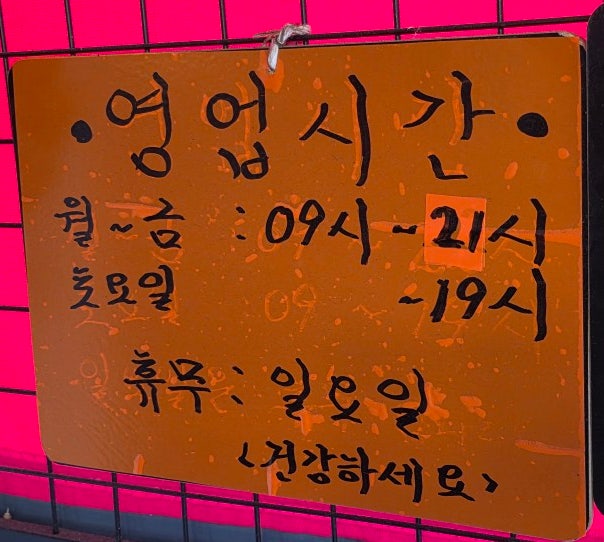 • 영업시간 •
월~금 : 09시~21시
토요일 ~19시
휴무 : 일요일
<건강하세요>